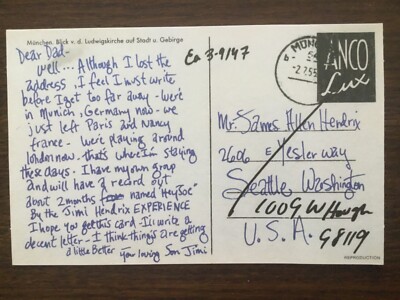 München. Blick v. d. Ludwigskirche auf Stadt u. Gebirge
Dear Dad-
well... Although I lost the
address, I feel I must write
before I get too far away - we're
in Munich, Germany now - we
just left Paris and Nancy
france - we're playing around
london now - that's where I'm staying
these days - I have my own group
and will have a record out
about 2 months named "Hey Joe"
By the Jimi Hendrix EXPERIENCE
I hope you get this card - I'll write a
decent letter - I think things are getting
a little Better
Your loving Son Jimi
Ea 3-9147
MÜN
ANCO
Lux
Mr. James Allen Hendrix
2606 E Yesler way
Seattle Washington
U. S. A.
98119
REPRODUCTION